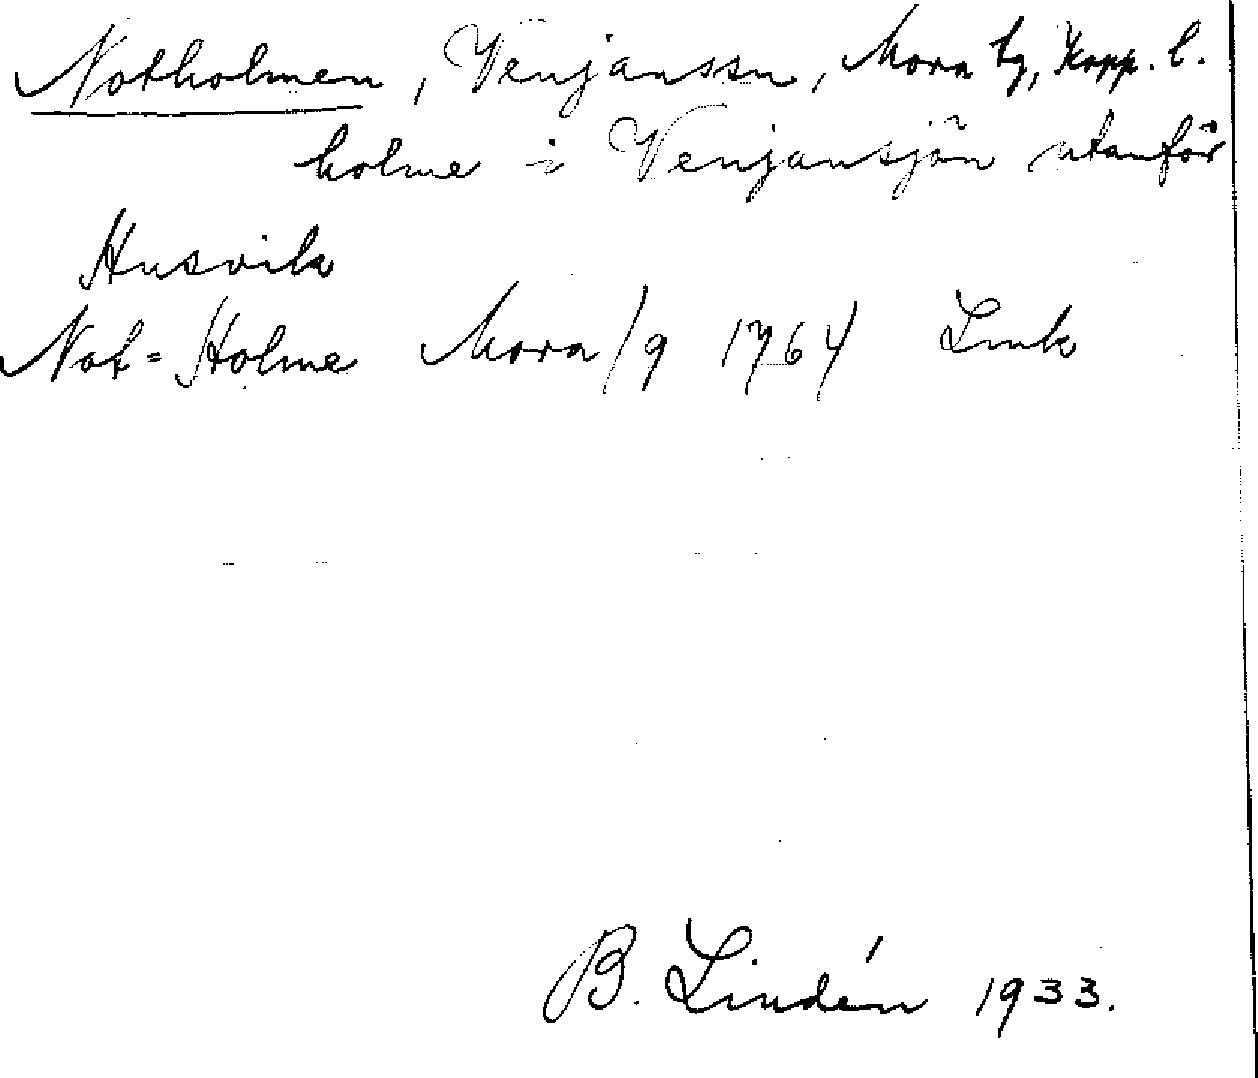 Notholmen, Venjanssn, Mora tg, Kopp. l.
holme i Venjansjön utanför
Husvik
Not=Holme Mora/9 1764 Lmk
B. Lindén 1933.